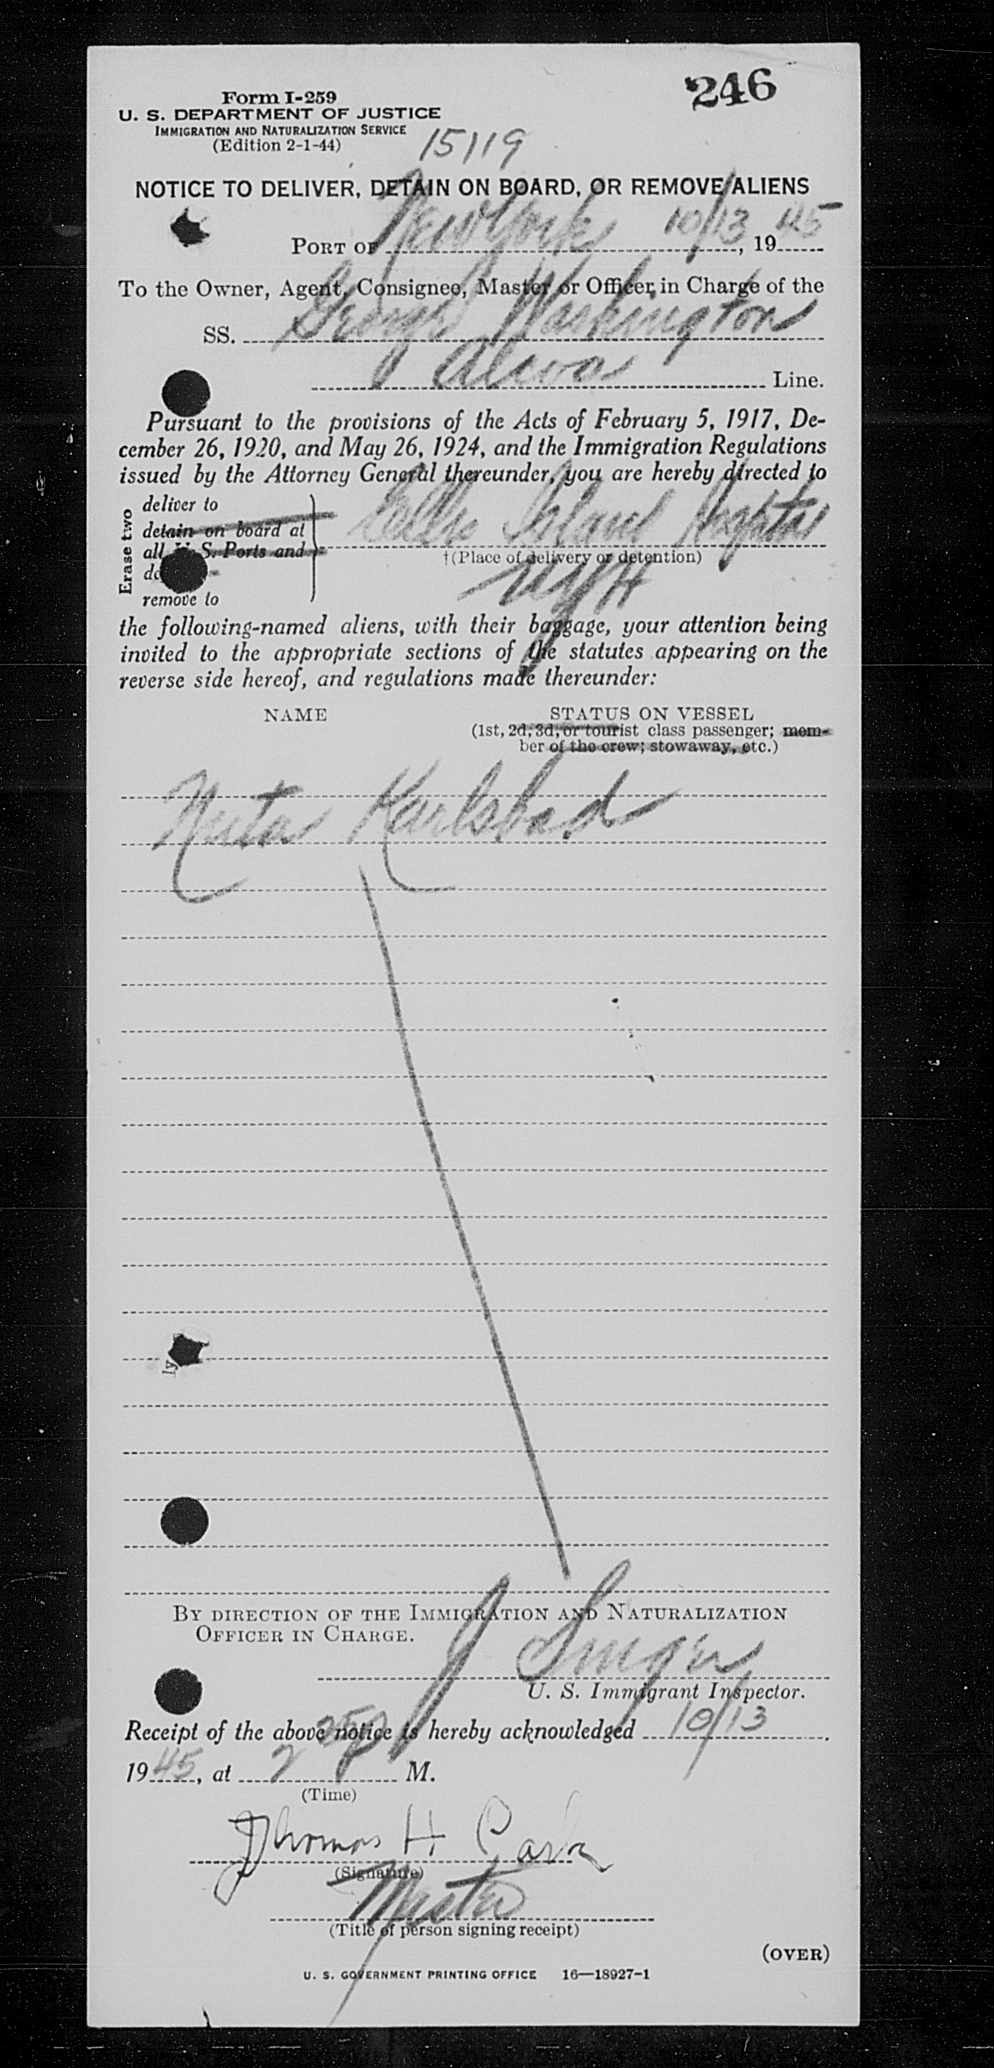 246
Form I-259
U. S. DEPARTMENT OF JUSTICE
IMMIGRATION AND NATURALIZATION SERVICE
(Edition 2-1-44)
15119
NOTICE TO DELIVER, DETAIN ON BOARD, OR REMOVE ALIENS
PORT OF New York 10/13, 1945
To the Owner, Agent, Consignee, Master or Officer in Charge of the
SS. George Washington
Alcoa Line.
Pursuant to the provisions of the Acts of February 5, 1917, De-
cember 26, 1920, and May 26, 1924, and the Immigration Regulations
issued by the Attorney General thereunder, you are hereby directed to
Erase two
deliver to
detain on board at
all U. S. Ports and
remove to
Ellis Island Hospital
†(Place of delivery or detention)
NYH
the following-named aliens, with their baggage, your attention being
invited to the appropriate sections of the statutes appearing on the
reverse side hereof, and regulations made thereunder:
NAME STATUS ON VESSEL
(1st, 2d, 3d, or tourist class passenger; mem-
ber of the crew; stowaway, etc.)
Nuta Karlsbad
BY DIRECTION OF THE IMMIGRATION AND NATURALIZATION
OFFICER IN CHARGE.
J Singer
U. S. Immigrant Inspector.
Receipt of the above notice is hereby acknowledged 10/13.
1945, at 2 25p M.
(Time)
Thomas H
(Signature)
Master
(Title of person signing receipt)
(OVER)
U. S. GOVERNMENT PRINTING OFFICE 16—18927-1